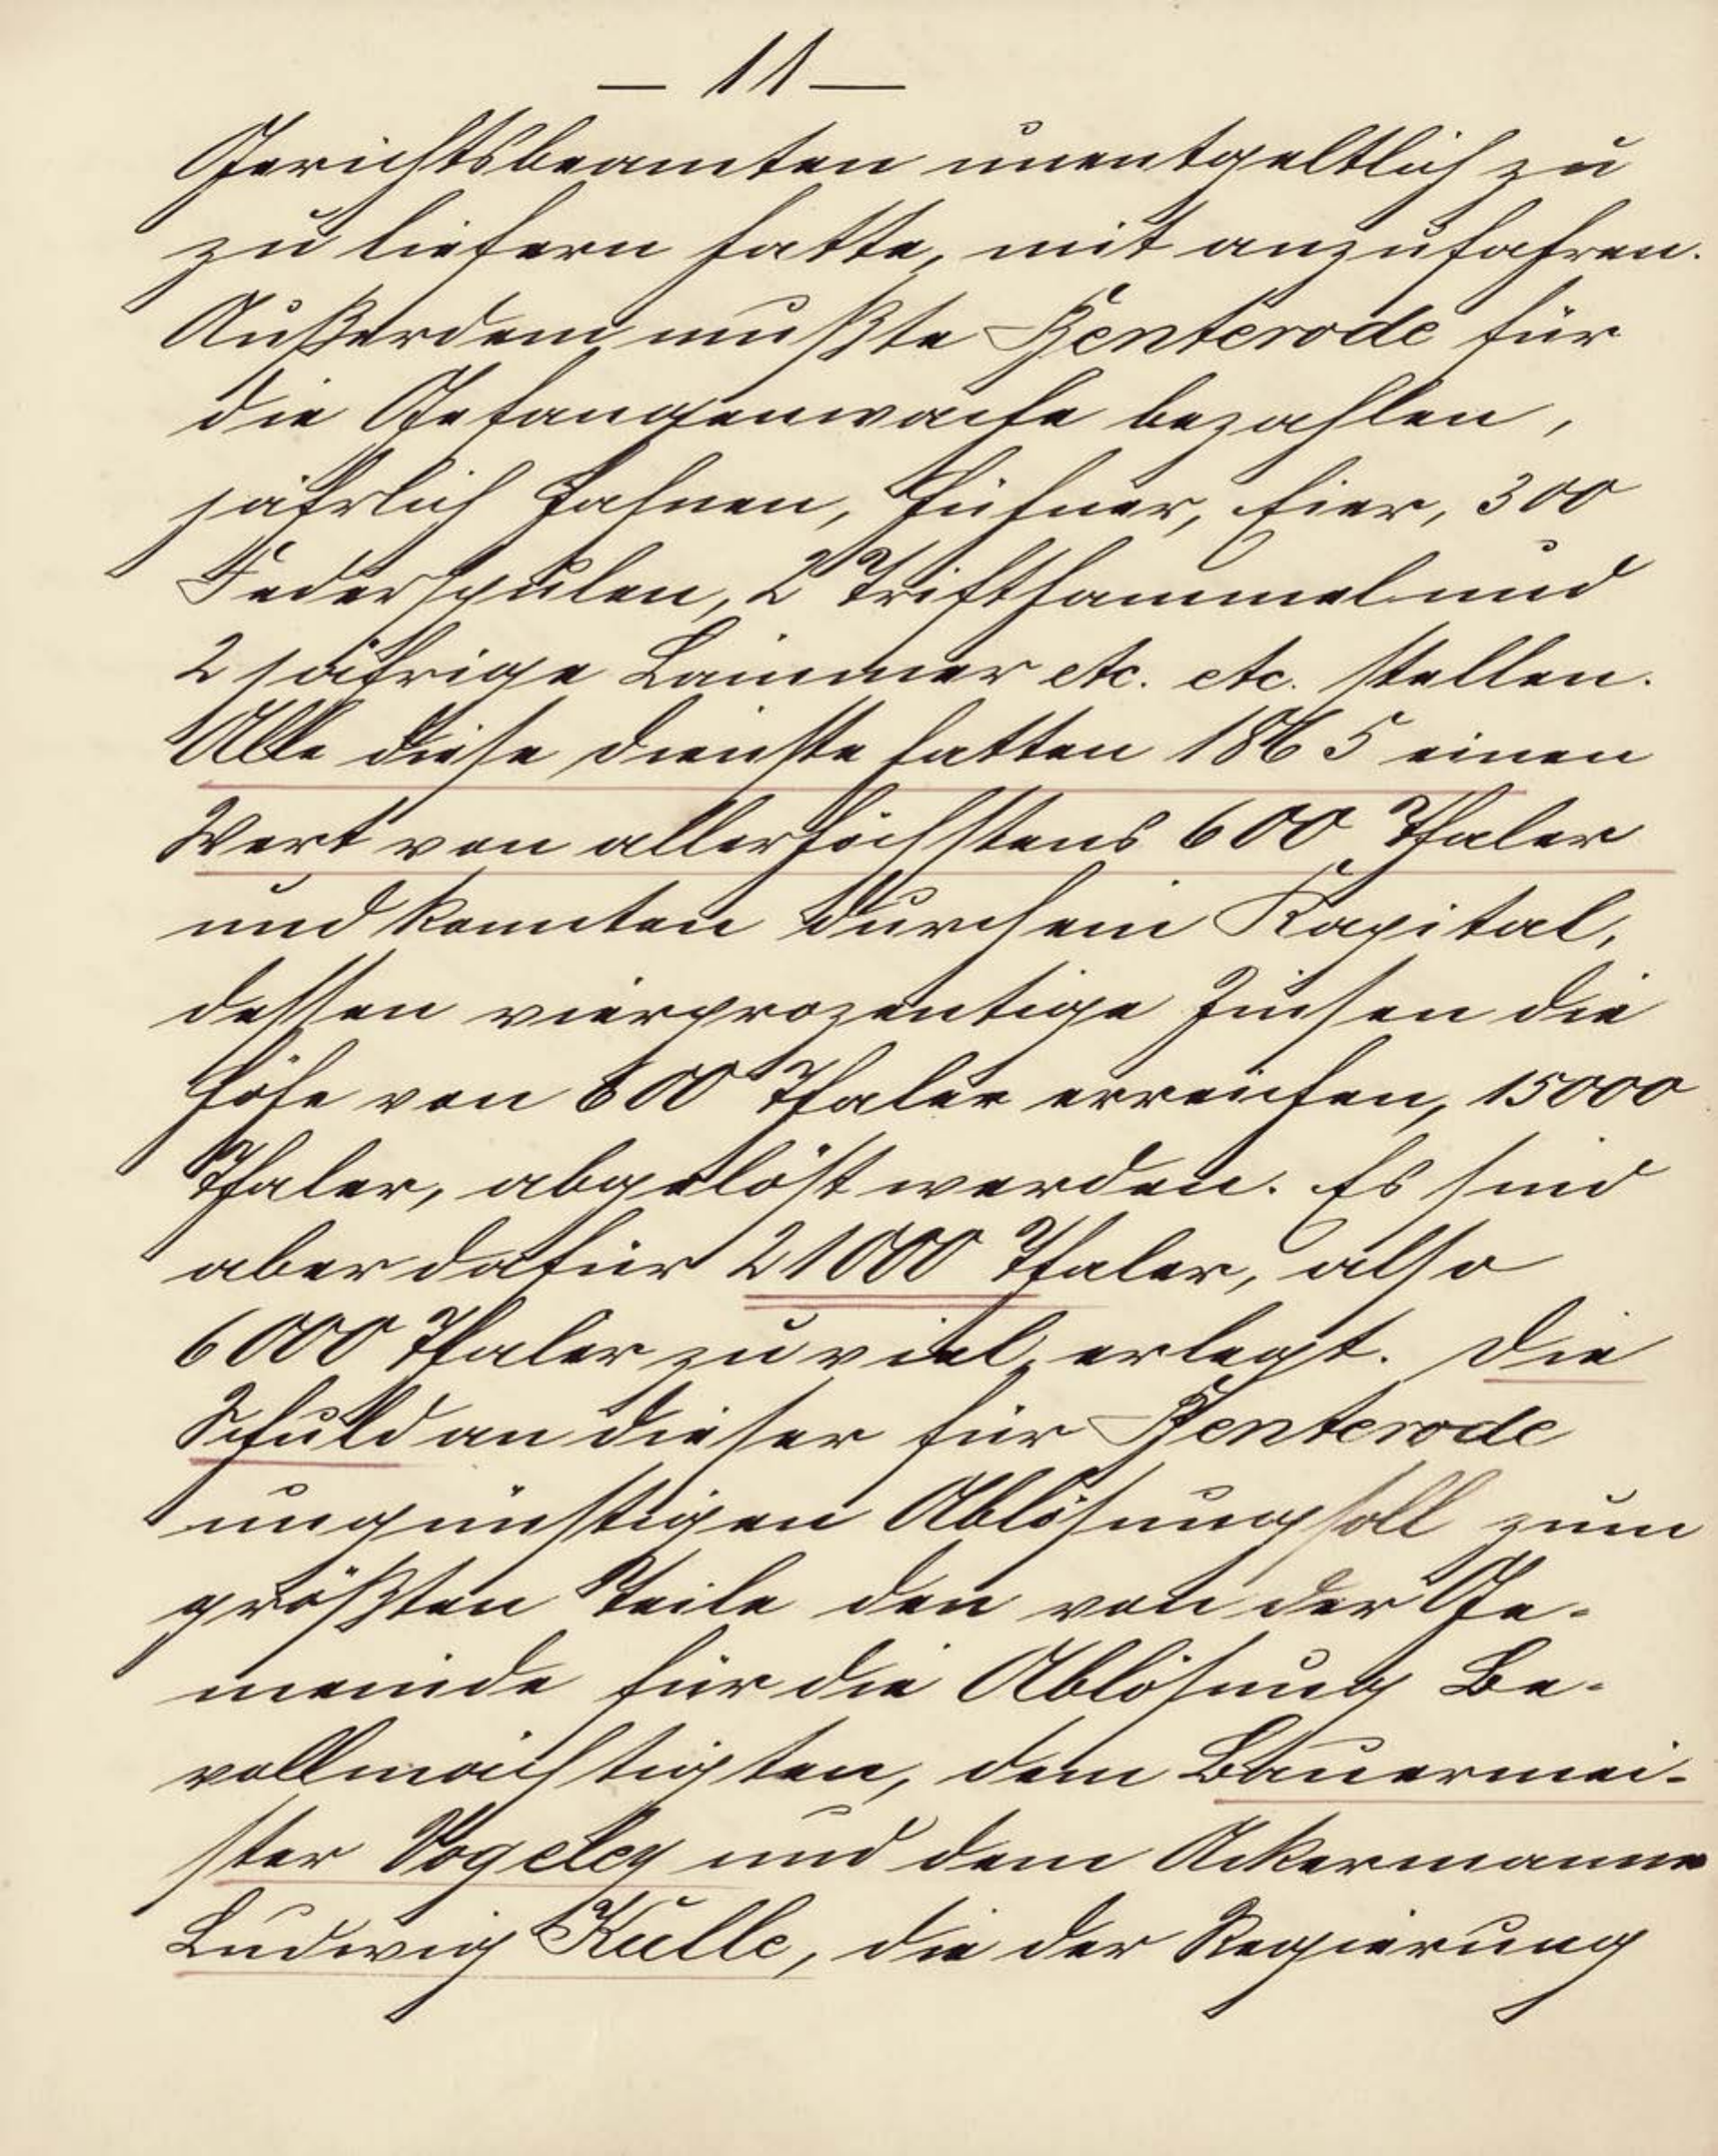 — 11 —
Gerichtsbeamten unentgeltlich zu
zu liefern hatte, mit anzufahren.
Außerdem mußte Benterode für
die Gefangenwache bezahlen,
jährlich Hahnen, Hühner, Eier, 300
Federspulen, 2 Trifthammel und
2 jährige Lämmer etc. etc. stellen.
Alle diese Dienste hatten 1865 einen
Wert von allerhöchstens 600 Thaler
und konnten durch ein Kapital,
dessen vierprozentige Zinsen die
Höhe von 600 Thaler erreichen, 15000
Thaler, abgelöst werden. Es sind
aber dafür 21000 Thaler, also
6000 Thaler zu viel, erlegt. Die
Schuld an dieser für Benterode
ungünstigen Ablösung soll zum
größten Teile den von der Ge-
meinde für die Ablösung Be-
vollmächtigten, dem Bauermei-
ster Vogeley und dem Ackermanne
Ludwig Kulle, die der Regierung